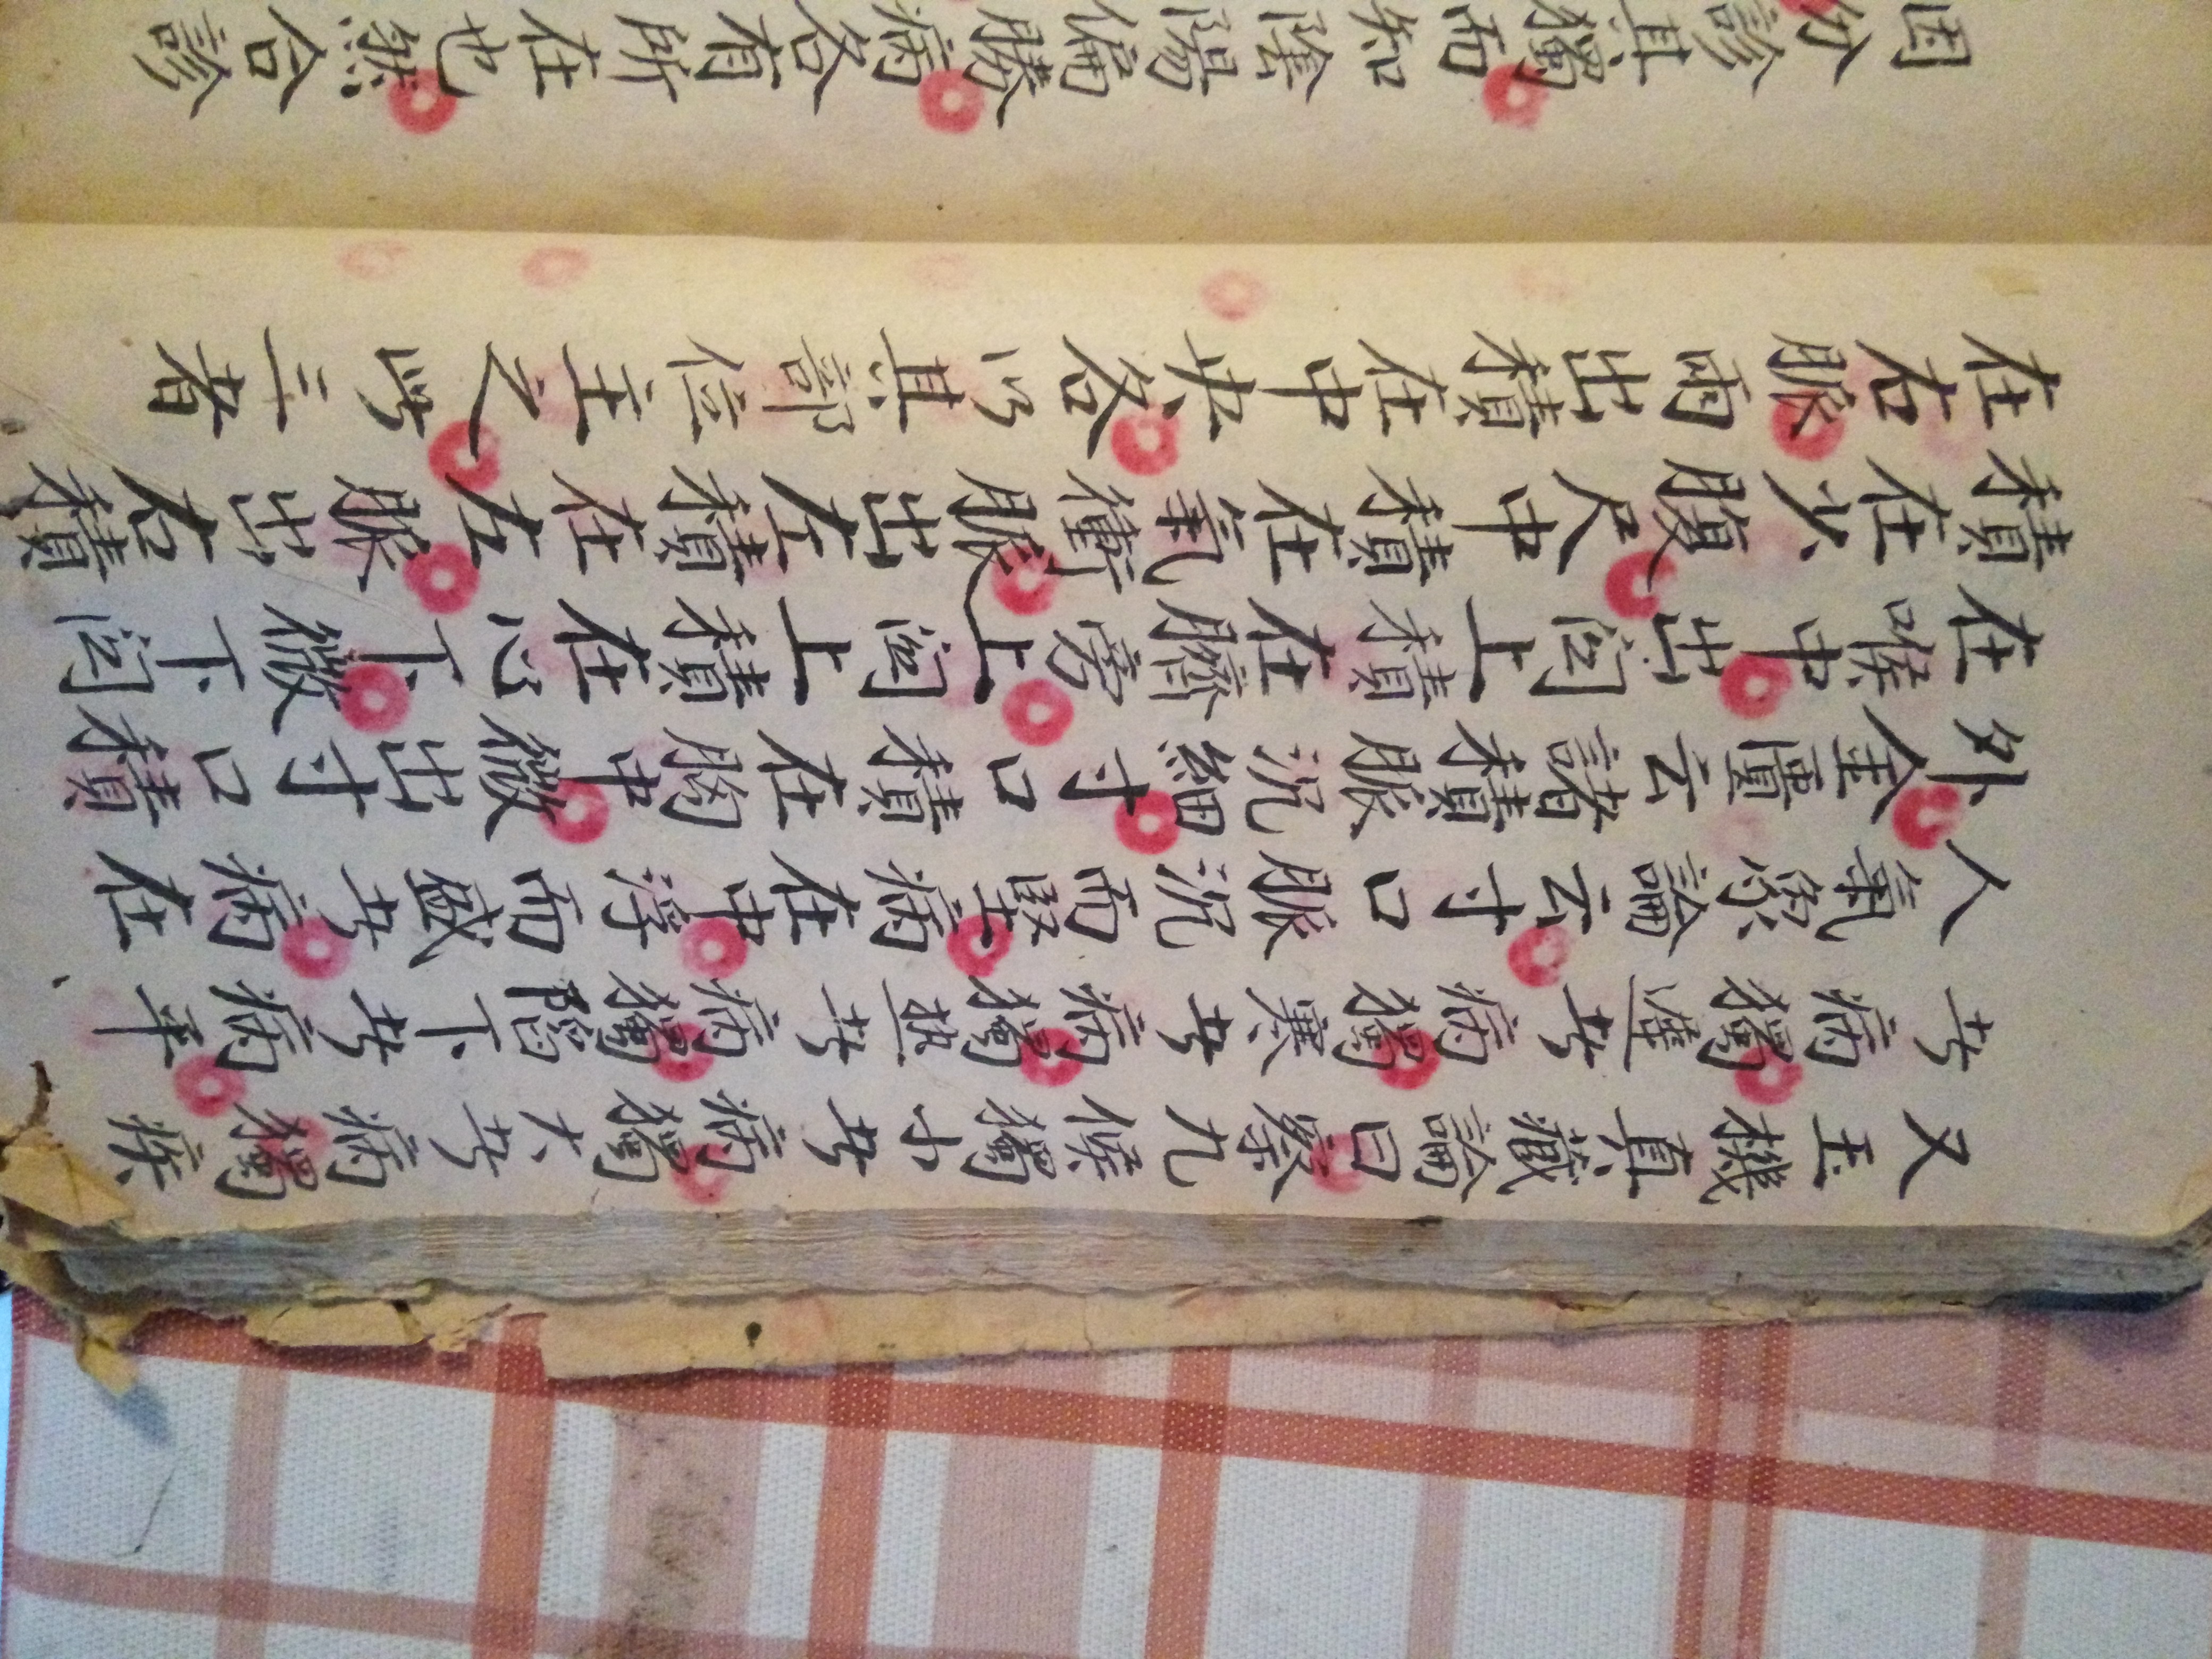 又玉機真藏論曰察九候獨小者病獨大者病獨疾
者病獨遲者病獨寒者病獨熱者病獨陷下者病平
人氣象論云寸口脈沉而堅病在中浮而盛者病在
外金匱云諸積脈沉細寸口積在胸中微出寸口積
在喉中出関上積在臍旁上関上積在心下微下関
積在少腹尺中積在氣衝脈出左積在左脈出右積
在右脈兩出積在中央各以其部位主之此三者
因分診其獨而知陰陽偏勝病各有所在也然合診